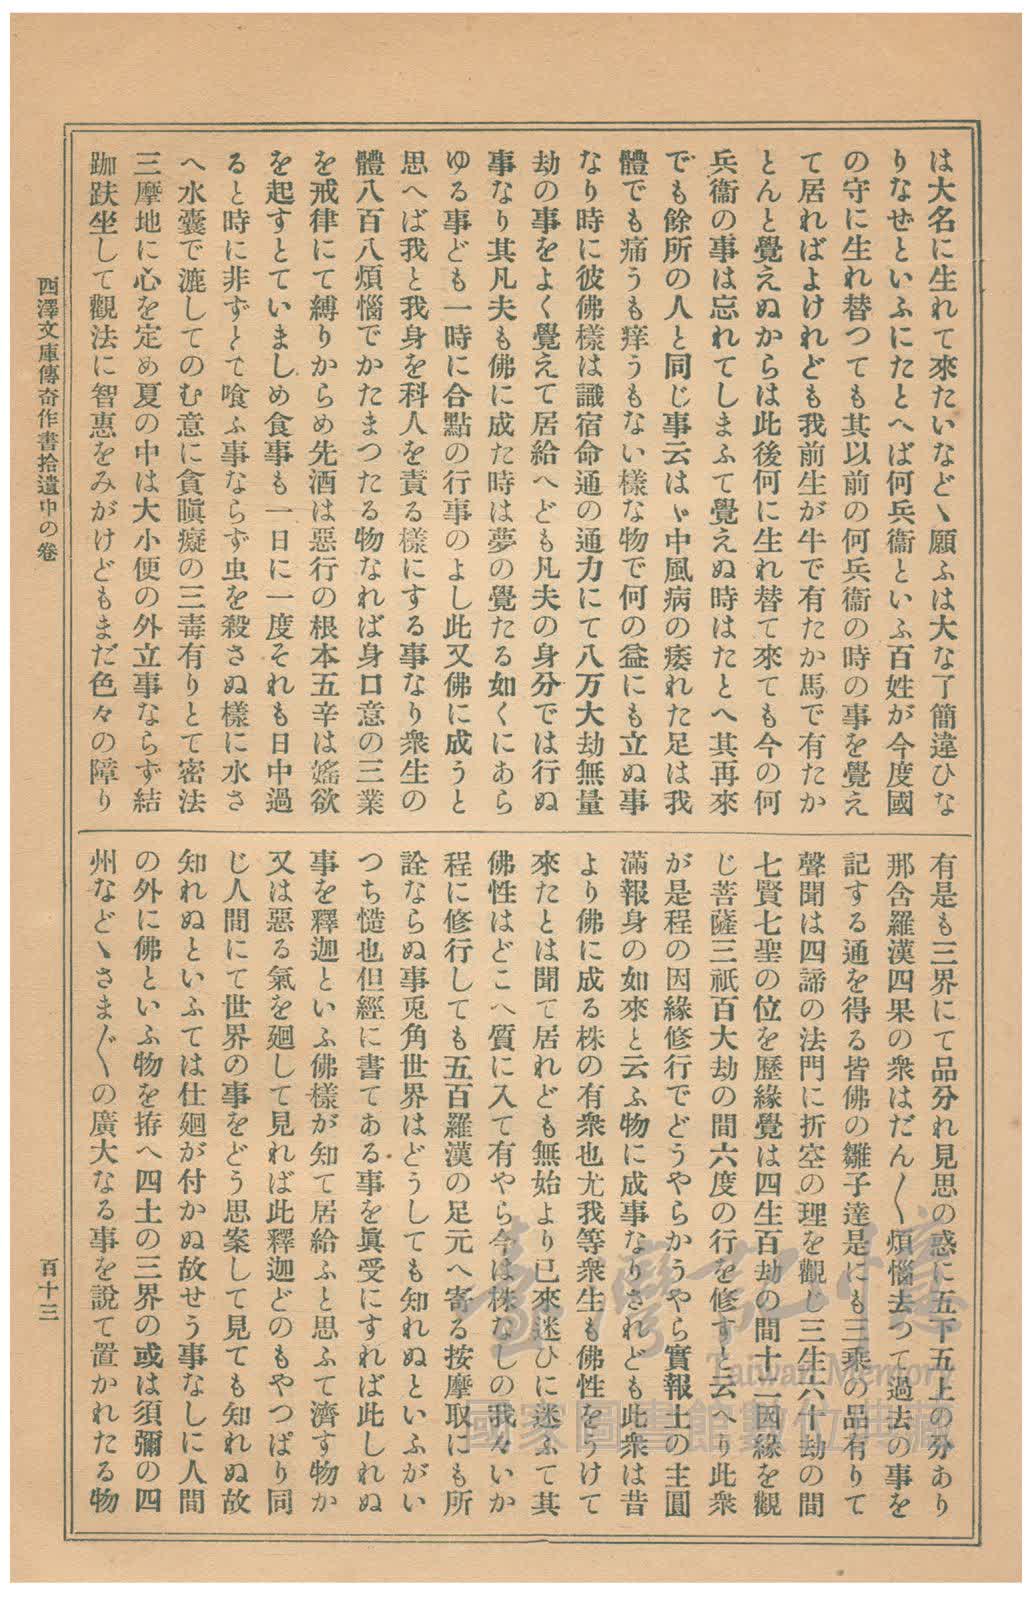 は大名に生れて來たいなどゝ願ふは大な了簡違ひな
りなぜといふにたとへば何兵衞といふ百姓が今度國
の守に生れ替つても其以前の何兵衞の時の事を覺え
て居ればよけれども我前生が牛で有たか馬で有たか
とんと覺えぬからは此後何に生れ替て來ても今の何
兵衞の事は忘れてしまふて覺えぬ時はたとへ其再來
でも餘所の人と同じ事云はゞ中風病の痿れた足は我
體でも痛うも痒うもない樣な物で何の益にも立ぬ事
なり時に彼佛樣は識宿命通の通力にて八万大劫無量
劫の事をよく覺えて居給へども凡夫の身分では行ぬ
事なり其凡夫も佛に成た時は夢の覺たる如くにあら
ゆる事ども一時に合點の行事のよし此又佛に成うと
思へば我と我身を科人を責る樣にする事なり衆生の
體八百八煩惱でかたまつたる物なれば身口意の三業
を戒律にて縛りからめ先酒は惡行の根本五辛は婬欲
を起すとていましめ食事も一日に一度それも日中過
ると時に非ずとて喰ふ事ならず虫を殺さぬ樣に水さ
へ水嚢で漉してのむ意に貪瞋癡の三毒有りとて密法
三摩地に心を定め夏の中は大小便の外立事ならず結
跏趺坐して觀法に智惠をみがけどもまだ色々の障り
有是も三界にて品分れ見思の惑に五下五上の分あり
那舍羅漢四果の衆はだん〳〵煩惱去つて過去の事を
記する通を得る皆佛の雛子達是にも三乘の品有りて
聲聞は四諦の法門に折空の理を觀じ三生六十劫の間
七賢七聖の位を歷緣覺は四生百劫の間十二因緣を觀
じ菩薩三祇百大劫の間六度の行を修すと云へり此衆
が是程の因緣修行でどうやらかうやら實報土の主圓
滿報身の如來と云ふ物に成事なりされども此衆は昔
より佛に成る株の有衆也尤我等衆生も佛性をうけて
來たとは聞て居れども無始より已來迷ひに迷ふて其
佛性はどこへ質に入て有やら今は株なしの我々いか
程に修行しても五百羅漢の足元へ寄る按摩取にも所
詮ならぬ事兎角世界はどうしても知れぬといふがい
つち慥也但經に書てある事を眞受にすれば此しれぬ
事を釋迦といふ佛樣が知て居給ふと思ふて濟す物か
又は惡る氣を廻して見れば此釋迦どのもやつぱり同
じ人間にて世界の事をどう思案して見ても知れぬ故
知れぬといふては仕廻が付かぬ故せう事なしに人間
の外に佛といふ物を拵へ四土の三界の或は須彌の四
州などゝさま〴〵の廣大なる事を說て置かれたる物
西澤文庫傳奇作書拾遺中の卷
百十三
臺灣記憶
Taiwan Memory
國家圖書館數位典藏